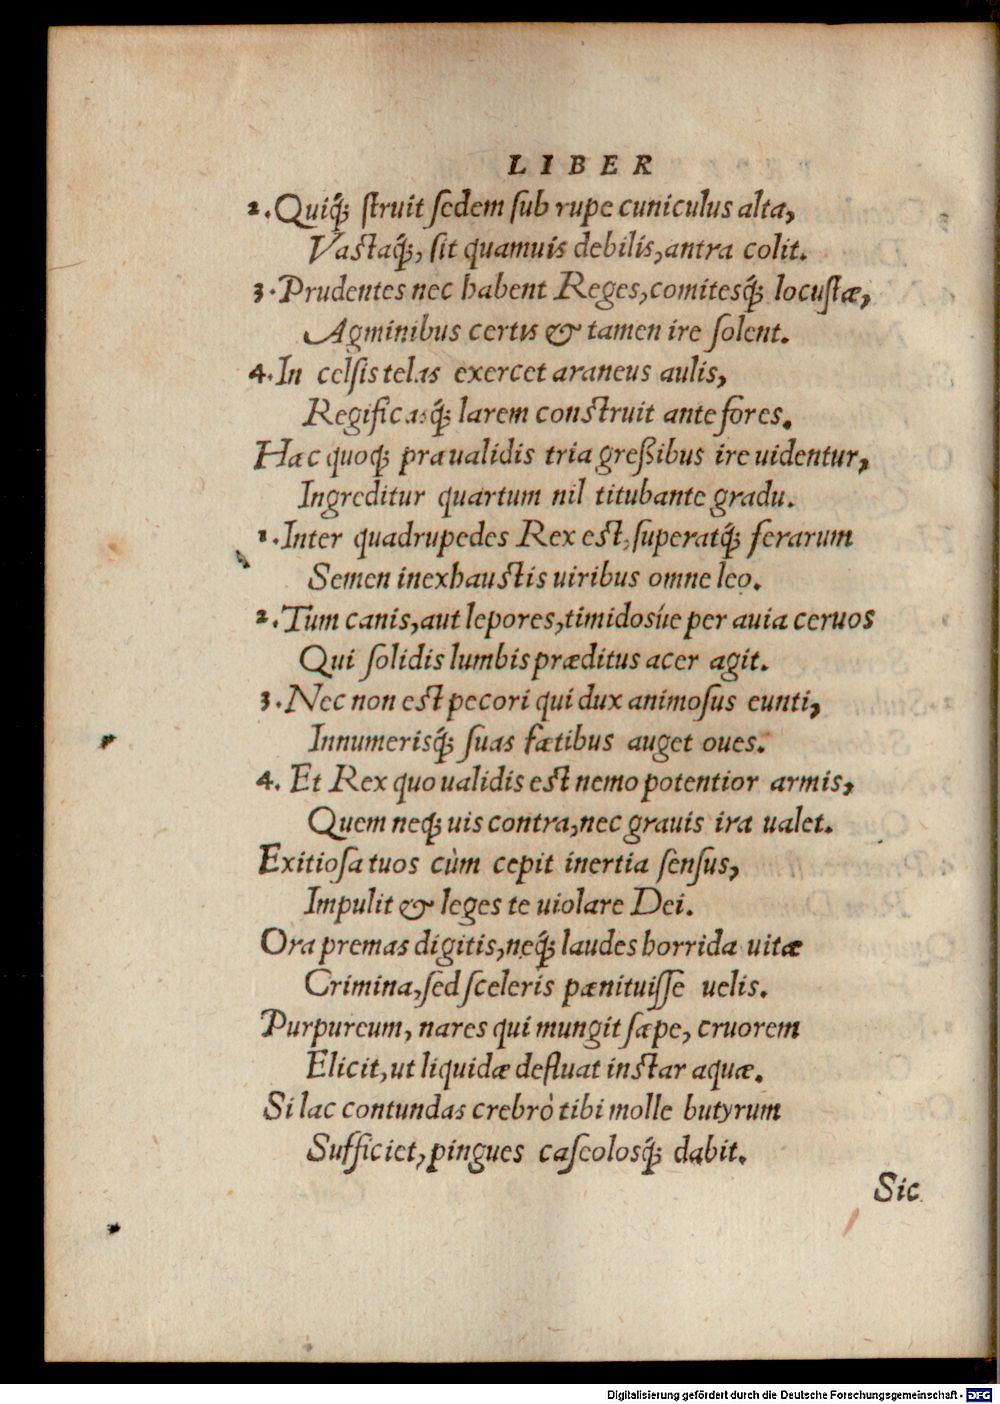 LIBER
2. Quiq́; struit sedem sub rupe cuniculus alta,
Vastaq́;, sit quamuis debilis, antra colit.
3. Prudentes nec habent Reges, comitesq́; locustæ,
Agminibus certis & tamen ire solent.
4. In celsis telas exercet araneus aulis,
Regificasq́; larem construit ante fores.
Hac quoq; praualidis tria greßibus ire uidentur,
Ingreditur quartum nil titubante gradu.
1. Inter quadrupedes Rex est, superatq́; ferarum
Semen inexhaustis uiribus omne leo.
2. Tum canis, aut lepores, timidosúe per auia ceruos
Qui solidis lumbis præditus acer agit.
3. Nec non est pecori qui dux animosus eunti,
Innumerisq́; suas fœtibus auget oues.
4. Et Rex quo ualidis est nemo potentior armis,
Quem neq; uis contra, nec grauis ira ualet.
Exitiosa tuos cùm cepit inertia sensus,
Impulit & leges te uiolare Dei.
Ora premas digitis, neq́; laudes horrida uitæ
Crimina, sed sceleris pænituisse uelis.
Purpureum, nares qui mungit sæpe, cruorem
Elicit, ut liquidæ defluat instar aquæ.
Si lac contundas crebrò tibi molle butyrum
Sufficiet, pingues caseolosq́; dabit.
Sic
Digitalisierung gefördert durch die Deutsche Forschungsgemeinschaft - DFG